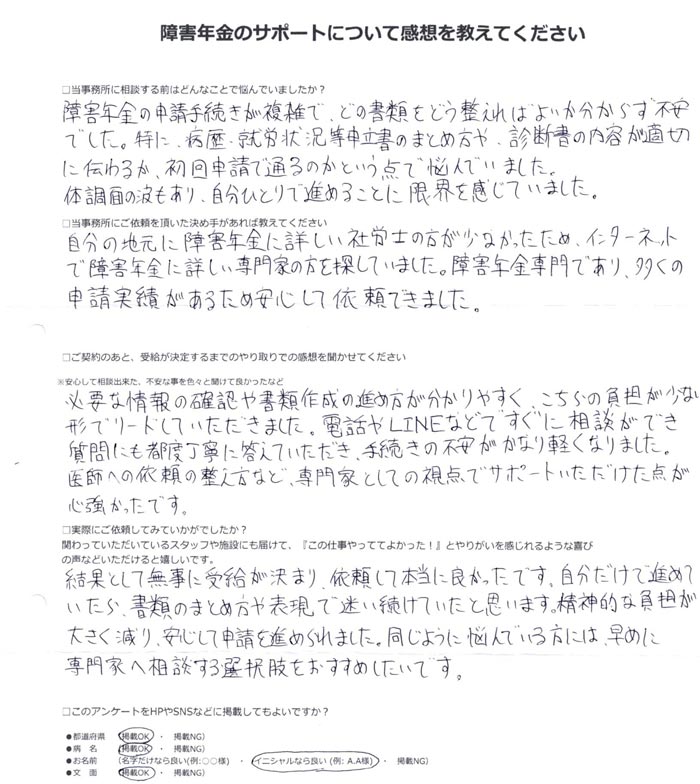 障害年金のサポートについて感想を教えてください
□当事務所に相談する前はどんなことで悩んでいましたか？
障害年金の申請手続きが複雑で、どの書類をどう整えればよいか分からず不安
でした。特に、病歴・就労状況等申立書のまとめ方や、診断書の内容が適切
に伝わるか、初回申請で通るのかという点で悩んでいました。
体調面の波もあり、自分ひとりで進めることに限界を感じていました。
□当事務所にご依頼を頂いた決め手があれば教えてください
自分の地元に障害年金に詳しい社労士の方が少なかったため、インターネット
で障害年金に詳しい専門家の方を探していました。障害年金専門であり、多くの
申請実績があるため安心して依頼できました。
□ご契約のあと、受給が決定するまでのやり取りでの感想を聞かせてください
※安心して相談出来た、不安な事を色々と聞けて良かったなど
必要な情報の確認や書類作成の進め方が分かりやすく、こちらの負担が少ない
形でリードしていただきました。電話やLINEなどですぐに相談ができ
質問にも都度丁寧に答えていただき、手続きの不安がかなり軽くなりました。
医師への依頼の整え方など、専門家としての視点でサポートいただけた点が
心強かったです。
□実際にご依頼してみていかがでしたか？
関わっていただいているスタッフや施設にも届けて、『この仕事やっててよかった！』とやりがいを感じれるような喜び
の声などいただけると嬉しいです。
結果として無事に受給が決まり、依頼して本当に良かったです。自分だけで進めて
いたら、書類のまとめ方や表現で迷い続けていたと思います。精神的な負担が
大きく減り、安心して申請を進められました。同じように悩んでいる方には、早めに
専門家へ相談する選択肢をおすすめしたいです。
□このアンケートをHPやSNSなどに掲載してもよいですか？
●都道府県 （掲載OK ・ 掲載NG）
●病 名 （掲載OK ・ 掲載NG）
●お名前 （名字だけなら良い(例:○○様) ・ イニシャルなら良い (例: A.A様) ・ 掲載NG）
●文 面 （掲載OK ・ 掲載NG）